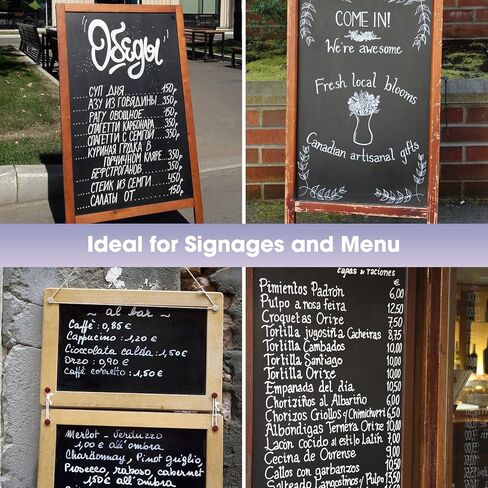 Обеды
СУП ДНЯ 150р
АЗУ ИЗ ГОВЯДИНЫ 350р
РАГУ ОВОЩНОЕ 150р
СПАГЕТТИ КАРБОНАРА 350р
СПАГЕТТИ С СЕМГОЙ 350р
КУРИНАЯ ГРУДКА В
ГОРЧИЧНОМ КЛЯРЕ 350р
БЕФСТРОГАНОВ 350р
СТЕЙК ИЗ СЕМГИ 450р
САЛАТЫ ОТ 150р
COME IN!
We're awesome
Fresh local blooms
Canadian artisanal gifts
Ideal for Signages and Menu
~ al bar ~
Caffè: 0,85 €
Cappucino: 1,20 €
Cioccolata calda: 1,50€
Orzo: 0,90 €
Caffè corretto: 1,50€
Merlot - Verduzzo
1,00 € all'ombra
Chardonnay, Pinot grigio,
Prosecco, raboso, cabernet
1,50€ all'ombra
tapas & raciones
€
Pimientos Padrón 6,00
Pulpo a nosa feira 12,50
Croquetas Orixe 7,50
Tortilla jugosiña Cacheiras 8,75
Tortilla Cambados 10,00
Tortilla Santiago 10,00
Tortilla Orixe 10,00
Empanada del día 10,50
Choriziños al Albariño 6,00
Chorizos Criollos y Chimichurri 6,50
Albóndigas Ternera Orixe 10,00
Lacón cocido al estilo Lalín 7,00
Cecina de Ourense 9,00
Callos con garbanzos 10,50
Salteado Langostinos y Pulpo 13,50